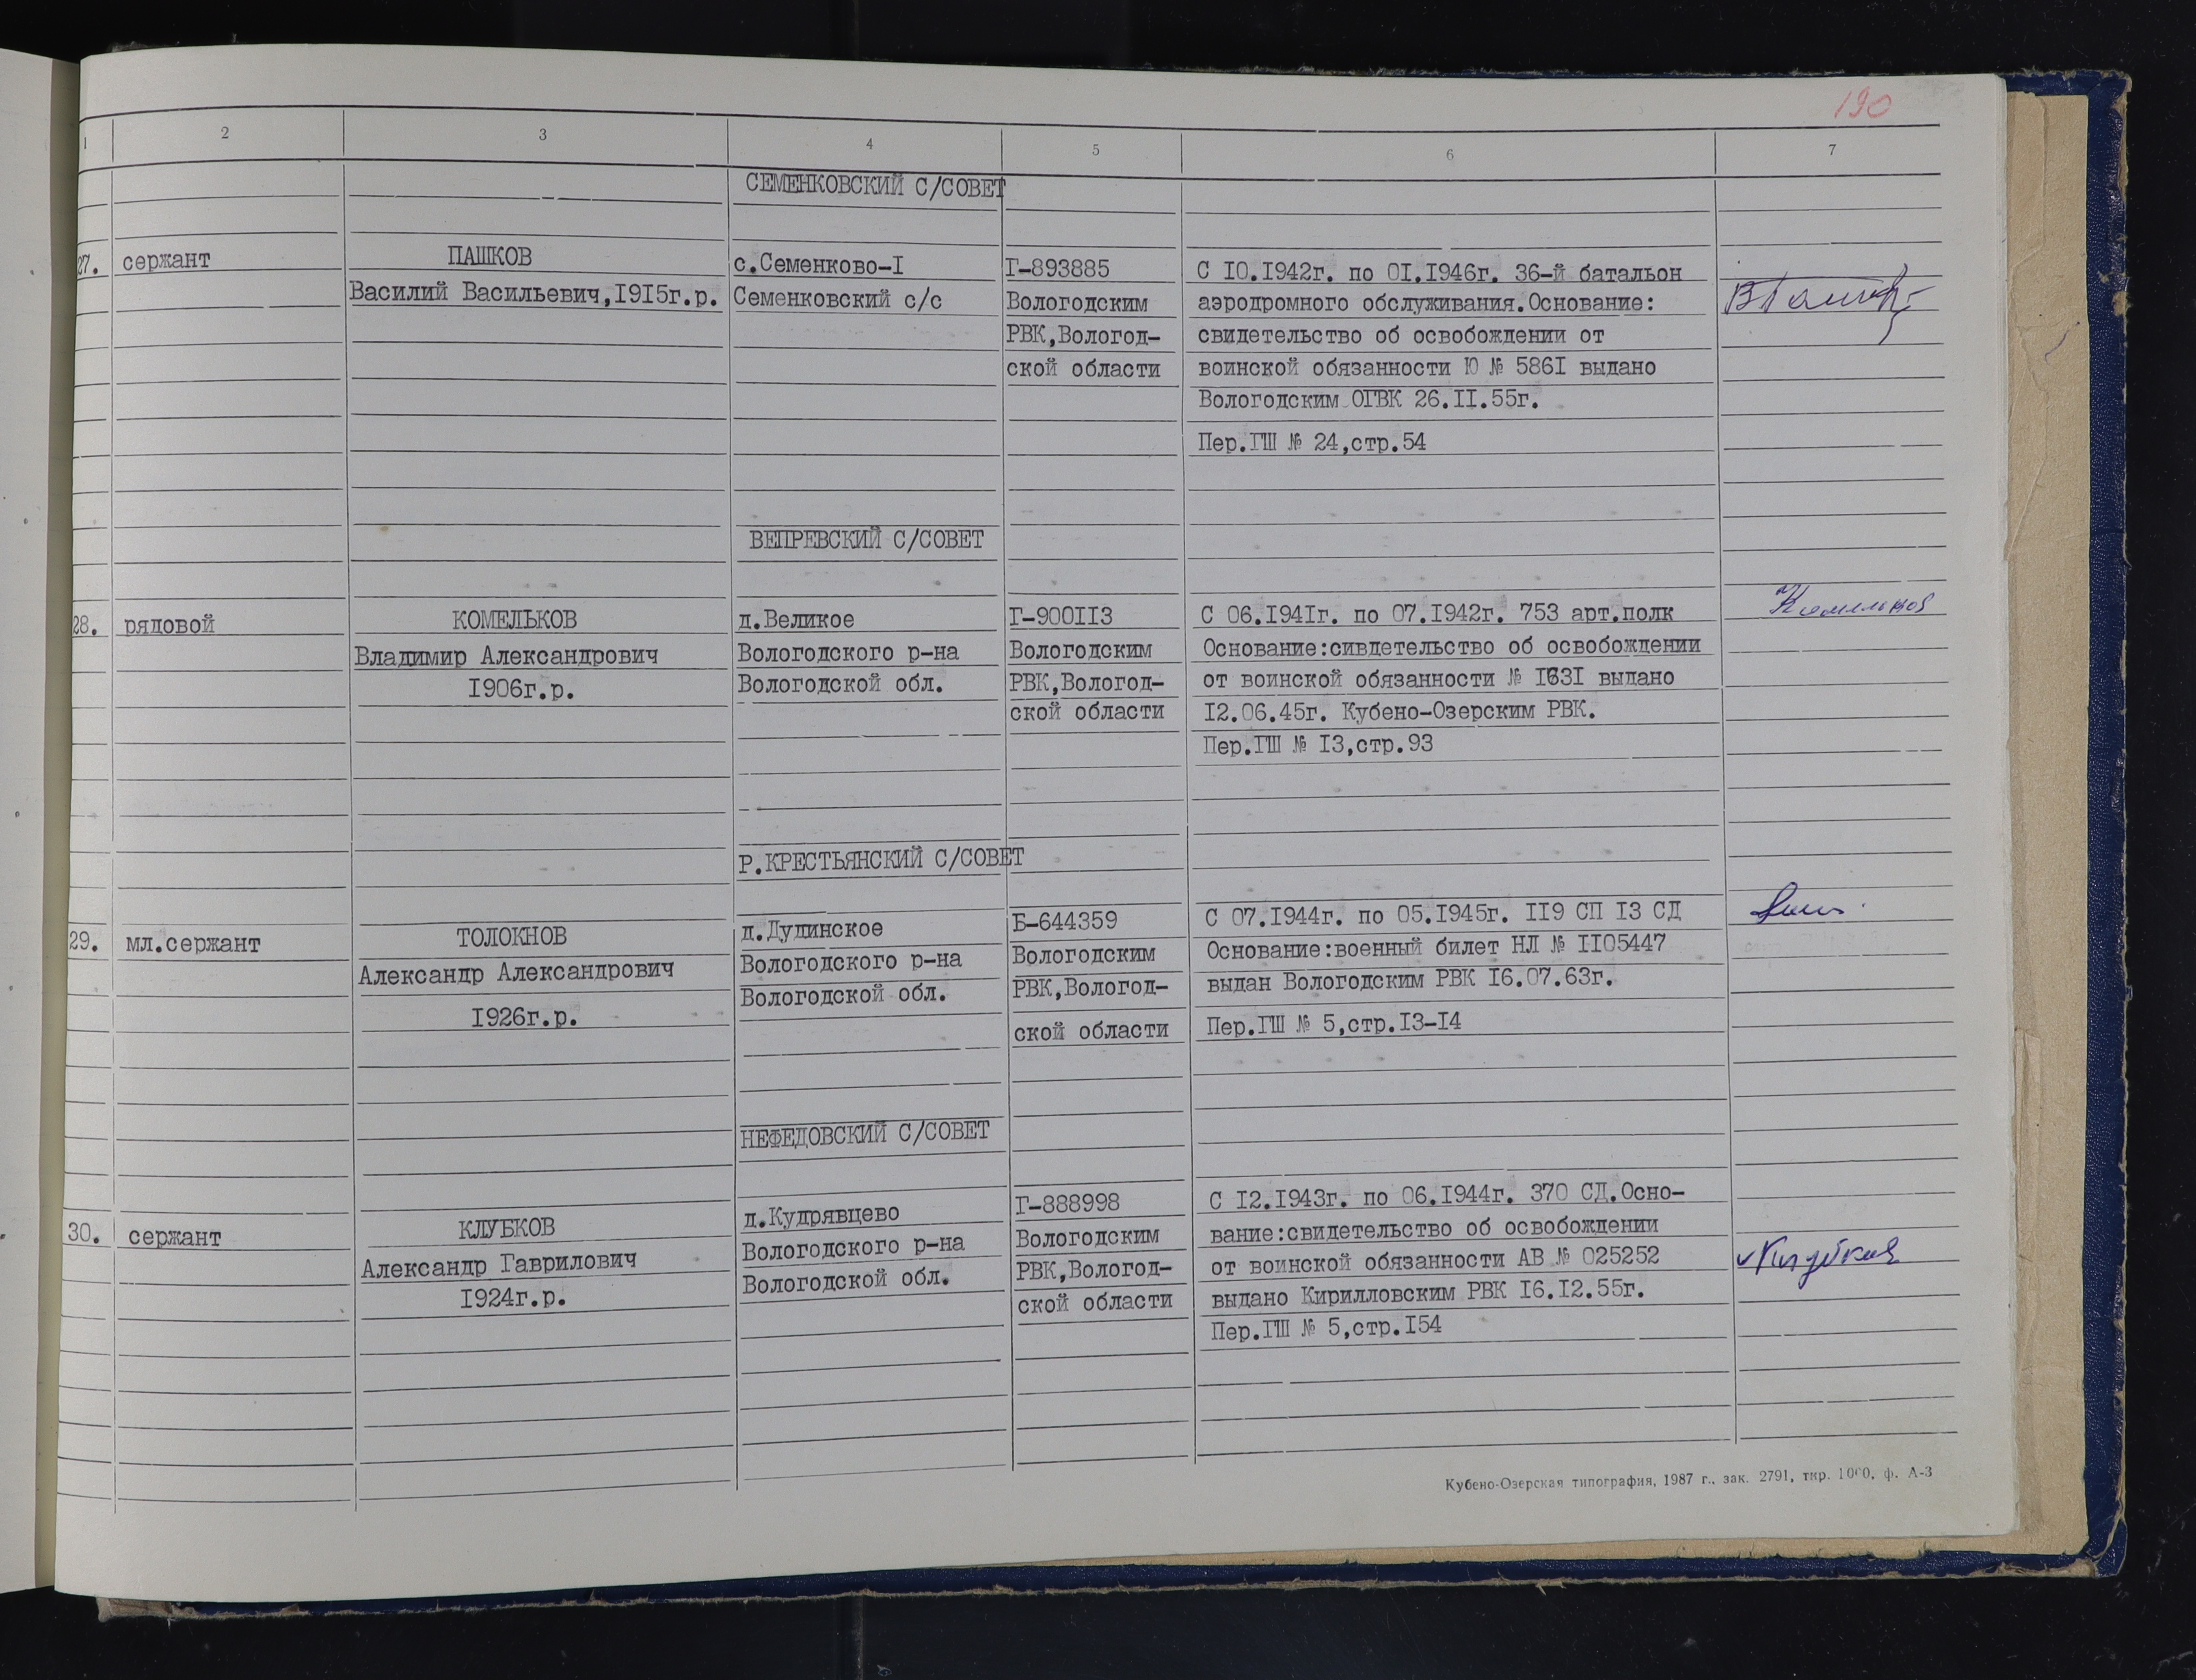 190
1 2 3 4 5 6 7
СЕМЕНКОВСКИЙ С/СОВЕТ
27. сержант ПАШКОВ с.Семенково-I Г-893885 С I0.I942г. по 0I.I946г. 36-й батальон
Василий Васильевич,I9I5г.р. Семенковский с/с Вологодским аэродромного обслуживания.Основание:
РВК,Вологод- свидетельство об освобождении от
ской области воинской обязанности Ю № 586I выдано
Вологодским ОГВК 26.II.55г.
Пер.ГШ № 24,стр.54
ВЕПРЕВСКИЙ С/СОВЕТ
28. рядовой КОМЕЛЬКОВ д.Великое Г-900II3 С 06.I94Iг. по 07.I942г. 753 арт.полк Комельков
Владимир Александрович Вологодского р-на Вологодским Основание:сивдетельство об освобождении
I906г.р. Вологодской обл. РВК,Вологод- от воинской обязанности № I63I выдано
ской области I2.06.45г. Кубено-Озерским РВК.
Пер.ГШ № I3,стр.93
Р.КРЕСТЬЯНСКИЙ С/СОВЕТ
29. мл.сержант ТОЛОКНОВ д.Дудинское Б-644359 С 07.I944г. по 05.I945г. II9 СП I3 СД
Александр Александрович Вологодского р-на Вологодским Основание:военный билет НЛ № II05447
I926г.р. Вологодской обл. РВК,Вологод- выдан Вологодским РВК I6.07.63г.
ской области Пер.ГШ № 5,стр.I3-I4
НЕФЕДОВСКИЙ С/СОВЕТ
30. сержант КЛУБКОВ д.Кудрявцево Г-888998 С I2.I943г. по 06.I944г. 370 СД.Осно-
Александр Гаврилович Вологодского р-на Вологодским вание:свидетельство об освобождении
I924г.р. Вологодской обл. РВК,Вологод- от воинской обязанности АВ № 025252 Клубков
ской области выдано Кирилловским РВК I6.I2.55г.
Пер.ГШ № 5,стр.I54
Кубено-Озерская типография, 1987 г., зак. 2791, тир. 1000, ф. А-3